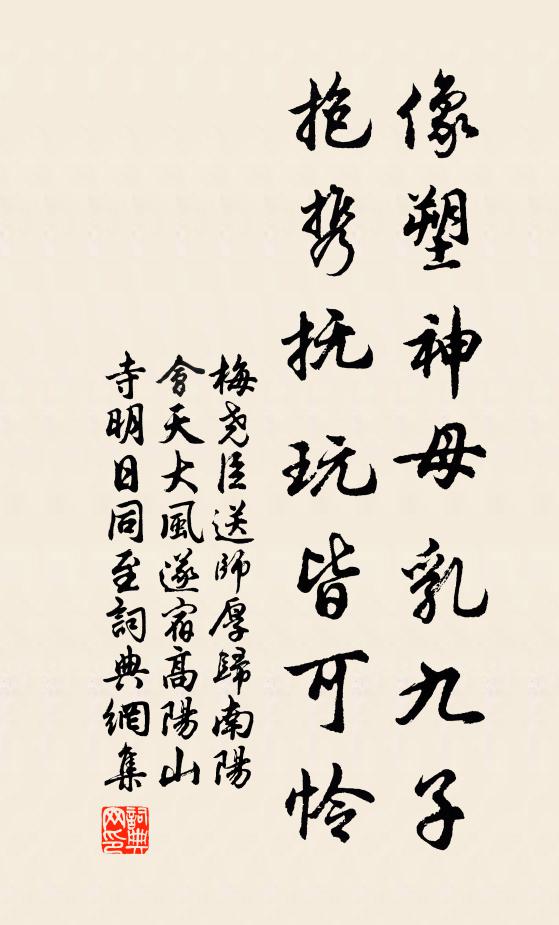 像塑神母乳九子
抱携抚玩皆可怜
梅尧臣送師厚歸南陽
會天大風遂宿高陽山
寺明日同至詞典網集
詞典
网印